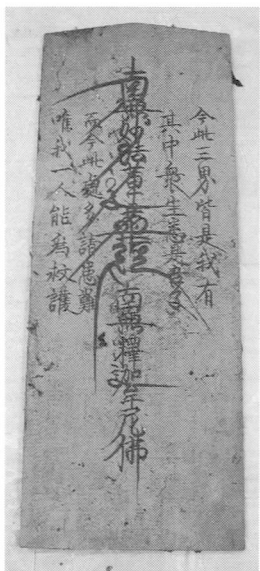 今此三界皆是我有
其中衆生悉是吾子
南無妙法蓮華經 南無釋迦牟尼佛
而今此處多諸患難
唯我一人能爲救護